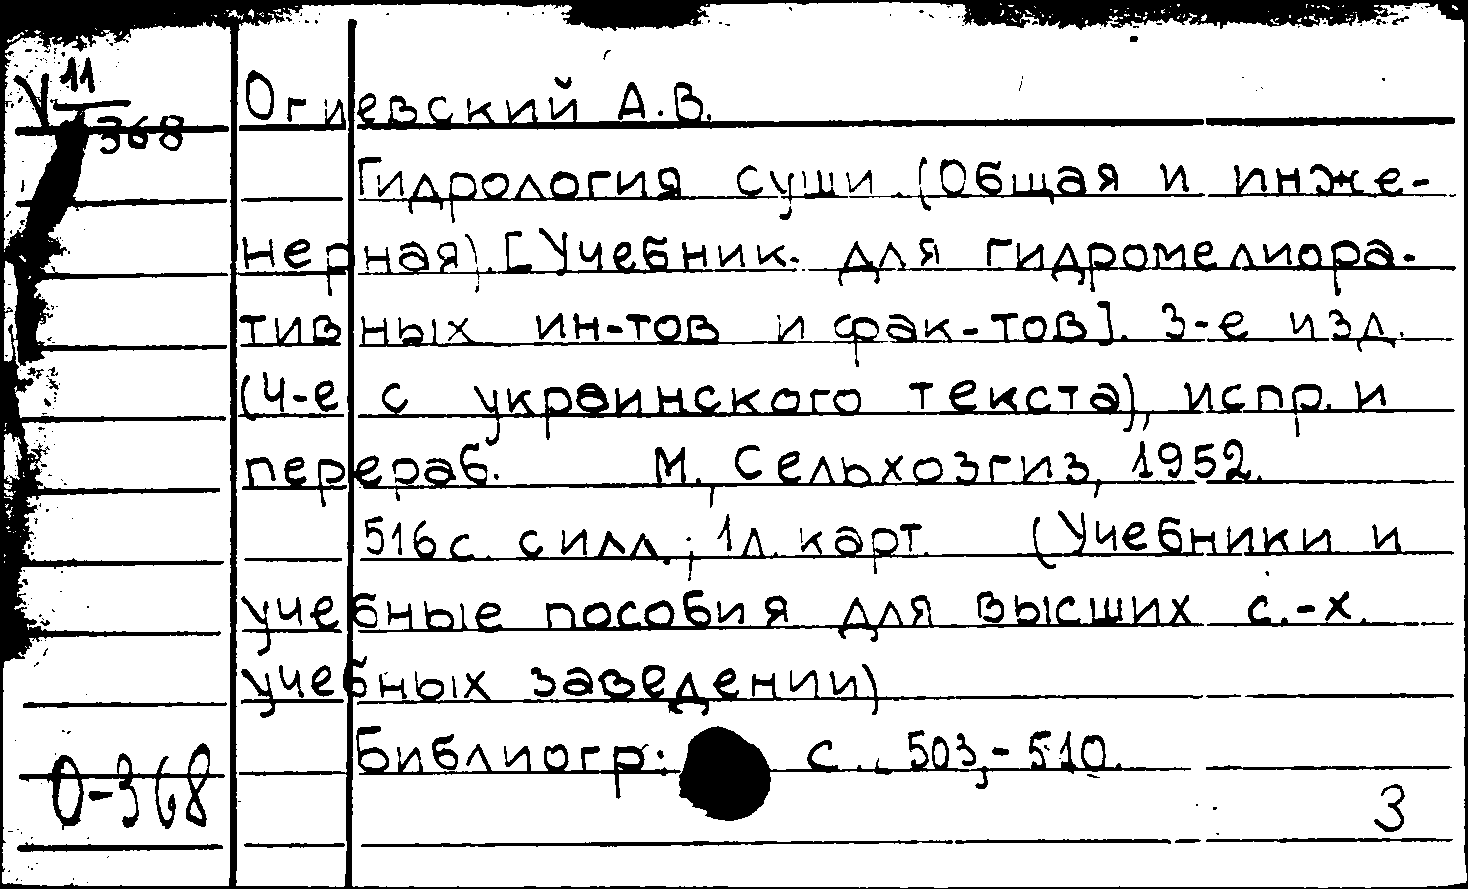 У 11/368
Огиевский А.В.
Гидрология суши. (Общая и инже-
нерная). [Учебник. для гидромелиора-
тивных ин-тов и фак-тов]. 3-е изд.
(4-е с украинского текста), испр. и
перераб. М., Сельхозгиз, 1952.
516с. с илл.; 1л. карт. (Учебники и
учебные пособия для высших с.-х.
учебных заведении)
Библиогр: с. 503,-510.
О-368
3